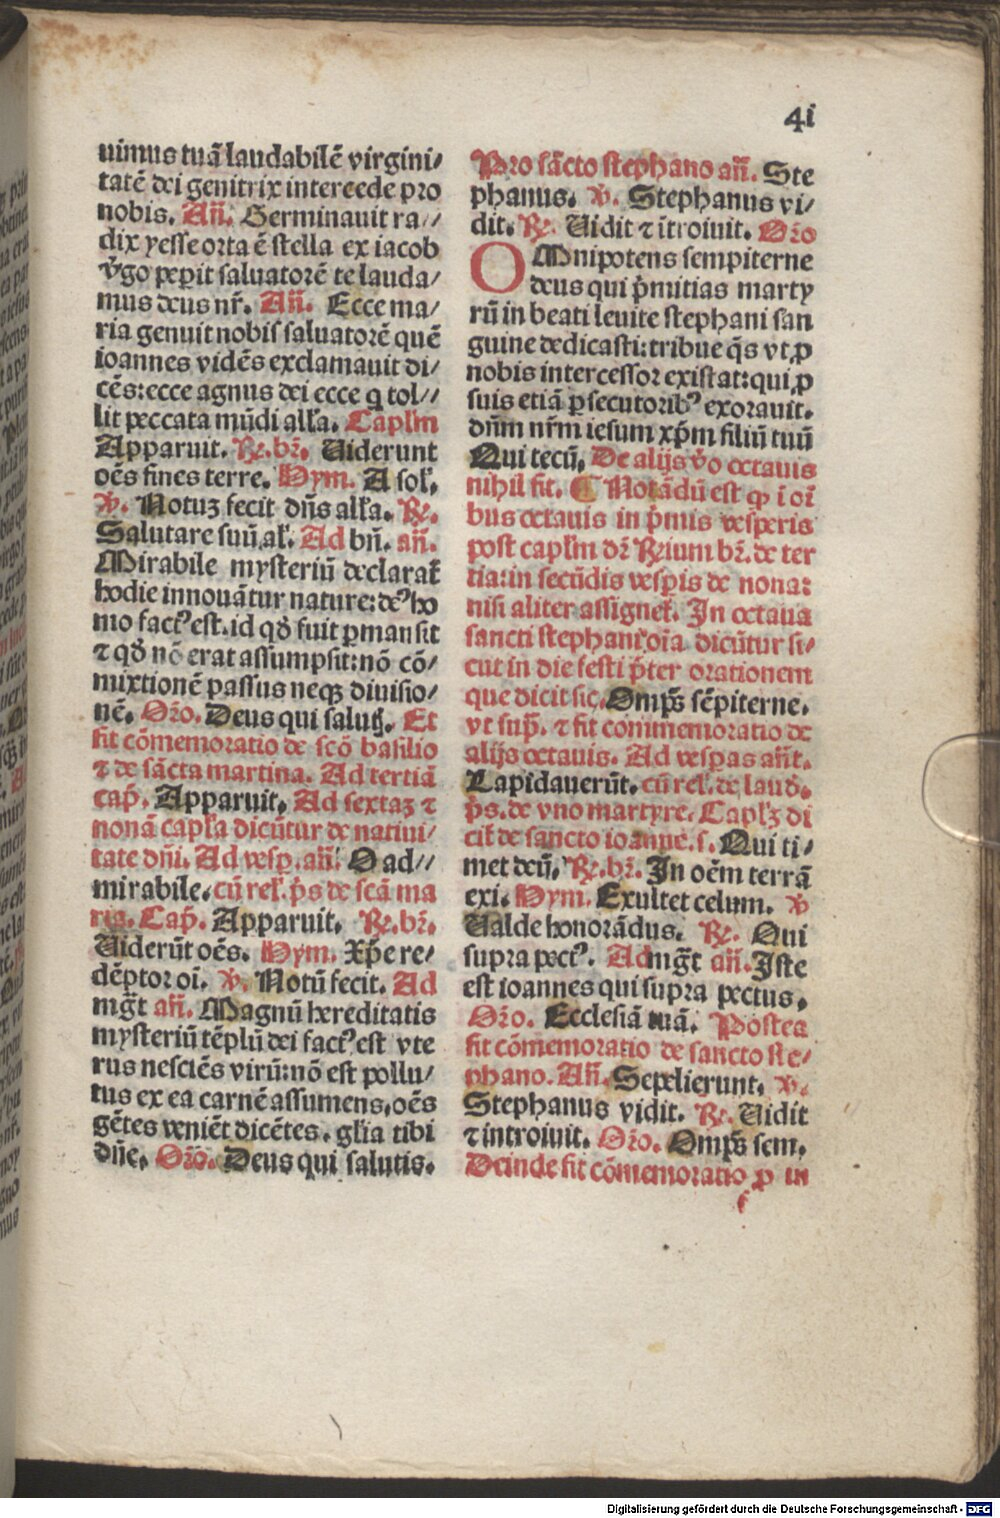 4i
uimus tuā laudabilē virgini/
tatē dei genitrix intercede pro
nobis. Añ. Germinauit ra//
dix yesse orta ē stella ex iacob
v̓go peperit saluatorē te lauda/
mus deus nr̄. Añ. Ecce ma/
ria genuit nobis saluatorē quē
ioannes vidēs exclamauit di/
cēs: ecce agnus dei ecce q tol//
lit peccata mūdi alła. Caplm̄
Apparuit. ℟. br̄. Uiderunt
oēs fines terre. Hym. A sol.
℣. Notuȝ fecit dn̄s alła. ℟.
Salutare suū, al. Ad bn̄. añ.
Mirabile mysteriū declarat̄
hodie innouātur nature: deꝰ ho
mo factꝰ est. id qď fuit ꝑmansit
⁊ qď nō erat assumpsit: nō cō/
mixtionē passus neqꝫ diuisio/
nē. Or̄o. Deus qui saluť. Et
fit cōmemoratio de scō basilio
⁊ de sācta martina. Ad tertiā
cap̄. Apparuit. Ad sextaȝ ⁊
nonā capła dicūtur de natiui/
tate dn̄i. Ad vesp. añ. O ad//
mirabile. cū rel. p̄s de scā ma
ria. Cap̄. Apparuit. ℟. br̄.
Uiderūt oēs. Hym. Xp̄e re/
dēptor oī. ℣. Notū fecit. Ad
mgt̄ añ. Magnū hereditatis
mysteriū tēplū dei factꝰ est vte
rus nesciēs virū: nō est pollu/
tus ex ea carnē assumens, oēs
gētes veniēt dicētes. glīa tibi
dn̄e. Or̄o. Deus qui salutis.
Pro sācto stephano añ. Ste
phanus. ℣. Stephanus vi/
dit. ℟. Uidit ⁊ ītroiuit. Or̄o
OMnipotens sempiterne
deus qui p̄mitias marty
rū in beati leuite stephani san
guine dedicasti: tribue q̄s vt ꝓ
nobis intercessor existat: qui ꝓ
suis etiā ꝑsecutoribꝰ exorauit.
dn̄m nr̄m iesum xp̄m filiū tuū
Qui tecū. De alijs v̓o octauis
nihil fit. ¶ Notādū est ꝙ ī oī
bus octauis in p̄mis vesperis
post caplm̄ dr̄ ℟ium br̄. de ter
tia: in secūdis vesꝑis de nona:
nisi aliter assignet̄. In octaua
sancti stephani oīa dicūtur si/
cut in die festi p̄ter orationem
que dicit sic. Omps̄ sēpiterne.
vt sup̄. ⁊ fit cōmemoratio de
alijs octauis. Ad vesꝑas añt.
Lapidauerūt. cū rel. de laud.
p̄s. de vno martyre. Caplȝ di
cit̄ de sancto ioanne. s. Qui ti/
met deū. ℟. br̄. In oēm terrā
exi. Hym. Exultet celum. ℣
Ualde honorādus. ℟. Qui
supra pectꝰ. Ad mgt̄ añ. Iste
est ioannes qui supra pectus.
Or̄o. Ecclesiā tuā. Postea
fit cōmemoratio de sancto ste/
phano. Añ. Sepelierunt. ℣.
Stephanus vidit. ℟. Uidit
⁊ introiuit. Or̄o. Omps̄ sem.
Deinde fit cōmemoratio ꝓ in
f
Digitalisierung gefördert durch die Deutsche Forschungsgemeinschaft - DFG